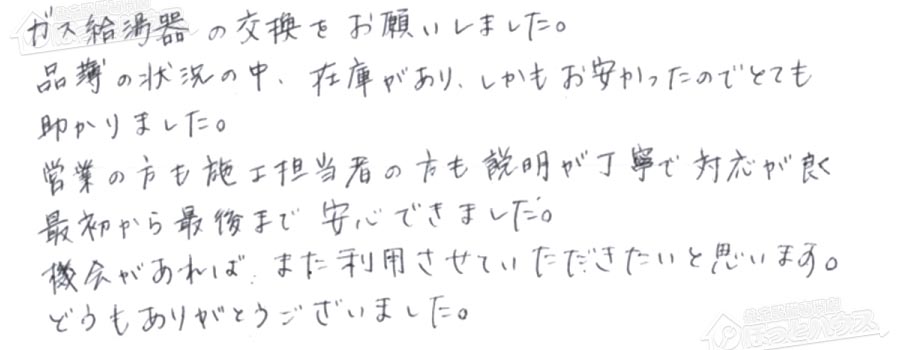 ガス給湯器の交換をお願いしました。
品薄の状況の中、在庫があり、しかもお安かったのでとても
助かりました。
営業の方も施工担当者の方も説明が丁寧で対応が良く
最初から最後まで安心できました。
機会があれば、また利用させていただきたいと思います。
どうもありがとうございました。
ほっとハウス